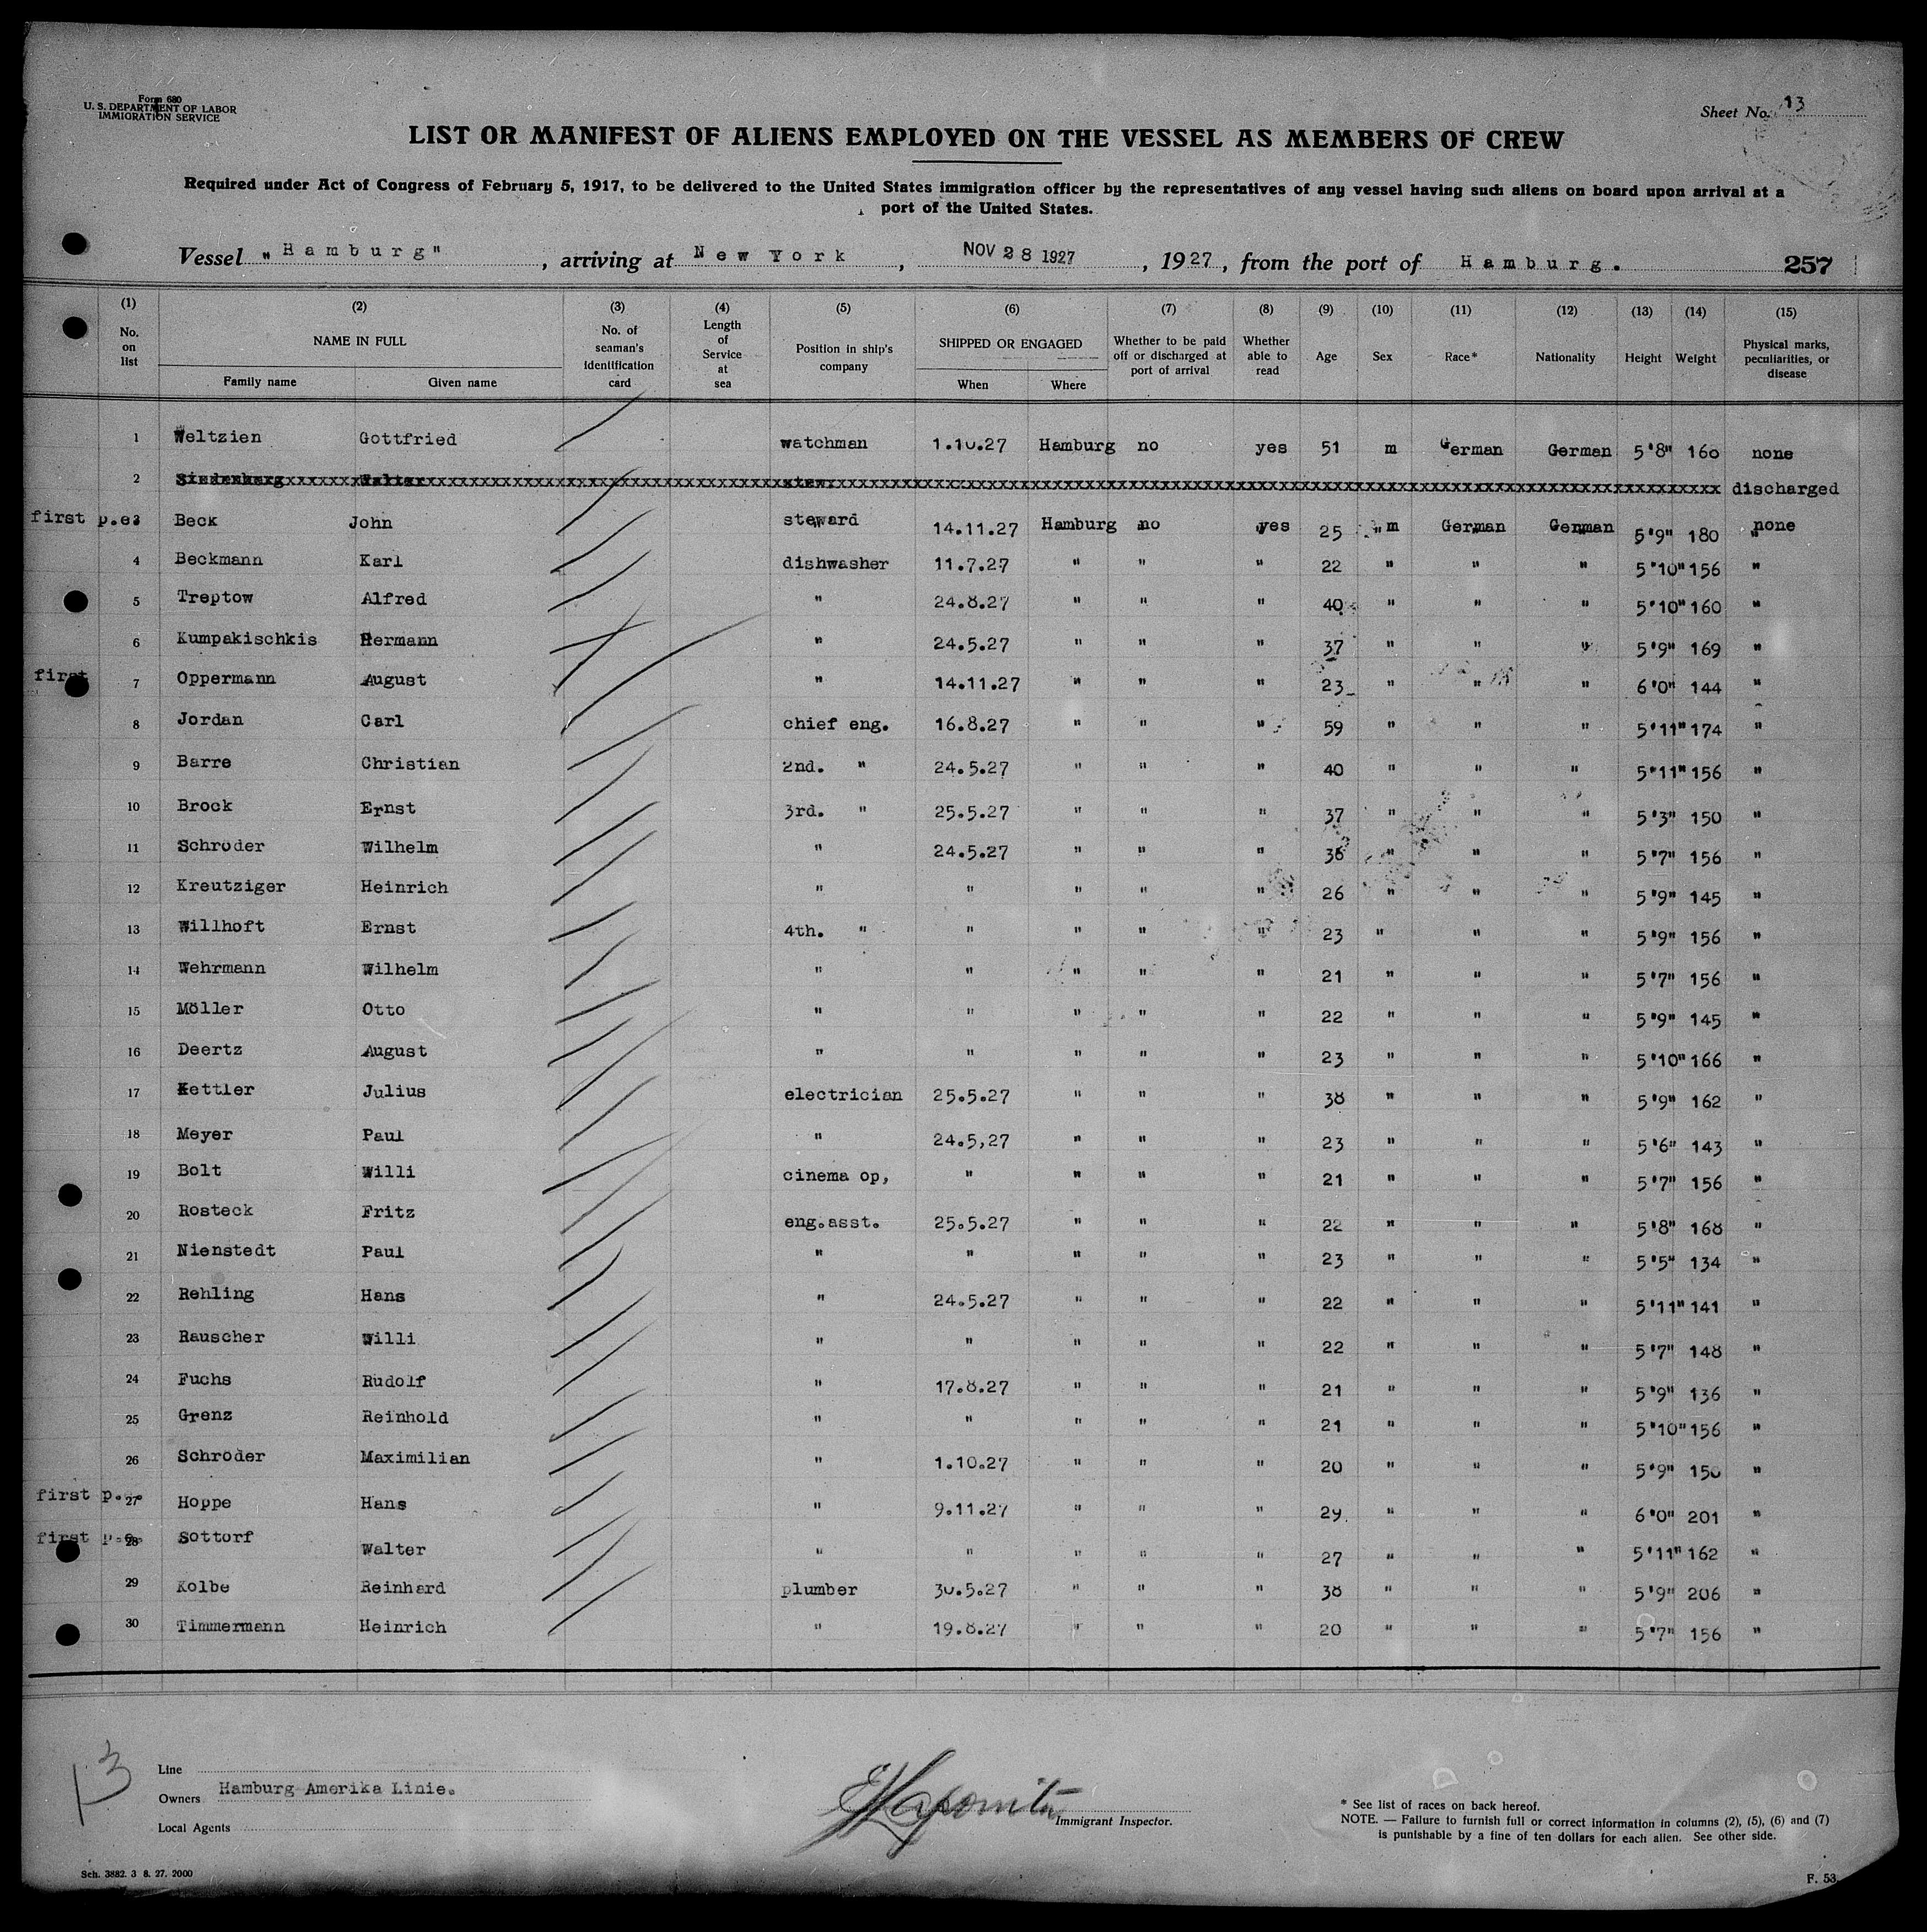 Form 680
U. S. DEPARTMENT OF LABOR
IMMIGRATION SERVICE
Sheet No. 13
LIST OR MANIFEST OF ALIENS EMPLOYED ON THE VESSEL AS MEMBERS OF CREW
Required under Act of Congress of February 5, 1917, to be delivered to the United States immigration officer by the representatives of any vessel having such aliens on board upon arrival at a
port of the United States.
Vessel "Hamburg", arriving at New York, NOV 28 1927, 1927, from the port of Hamburg. 257
(1) (2) (3) (4) (5) (6) (7) (8) (9) (10) (11) (12) (13) (14) (15)
No. on list NAME IN FULL Family name Given name No. of seaman's identification card Length of Service at sea Position in ship's company SHIPPED OR ENGAGED When Where Whether to be paid off or discharged at port of arrival Whether able to read Age Sex Race* Nationality Height Weight Physical marks, peculiarities, or disease
1 Weltzien Gottfried watchman 1.10.27 Hamburg no yes 51 m German German 5'8" 160 none
2 Siedenburg Walter stew. discharged
first p.e. 3 Beck John steward 14.11.27 Hamburg no yes 25 " m German German 5'9" 180 none
4 Beckmann Karl dishwasher 11.7.27 " " " 22 " " " 5'10" 156 "
5 Treptow Alfred " 24.8.27 " " " 40 " " " 5'10" 160 "
6 Kumpakischkis Hermann " 24.5.27 " " " 37 " " " 5'9" 169 "
first 7 Oppermann August " 14.11.27 " " " 23 " " " 6'0" 144 "
8 Jordan Carl chief eng. 16.8.27 " " " 59 " " " 5'11" 174 "
9 Barre Christian 2nd. " 24.5.27 " " " 40 " " " 5'11" 156 "
10 Brock Ernst 3rd. " 25.5.27 " " " 37 " " " 5'3" 150 "
11 Schröder Wilhelm " 24.5.27 " " " 36 " " " 5'7" 156 "
12 Kreutziger Heinrich " " " " " 26 " " " 5'9" 145 "
13 Willhoft Ernst 4th. " " " " " 23 " " " 5'9" 156 "
14 Wehrmann Wilhelm " " " " " 21 " " " 5'7" 156 "
15 Möller Otto " " " " " 22 " " " 5'9" 145 "
16 Deertz August " " " " " 23 " " " 5'10" 166 "
17 Kettler Julius electrician 25.5.27 " " " 38 " " " 5'9" 162 "
18 Meyer Paul " 24.5,27 " " " 23 " " " 5'6" 143 "
19 Bolt Willi cinema op, " " " " 21 " " " 5'7" 156 "
20 Rosteck Fritz eng.asst. 25.5.27 " " " 22 " " " 5'8" 168 "
21 Nienstedt Paul " " " " " 23 " " " 5'5" 134 "
22 Rehling Hans " 24.5.27 " " " 22 " " " 5'11" 141 "
23 Rauscher Willi " " " " " 22 " " " 5'7" 148 "
24 Fuchs Rudolf " 17.8.27 " " " 21 " " " 5'9" 136 "
25 Grenz Reinhold " " " " " 21 " " " 5'10" 156 "
26 Schröder Maximilian " 1.10.27 " " " 20 " " " 5'9" 150 "
first p.e. 27 Hoppe Hans " 9.11.27 " " " 29 " " " 6'0" 201 "
first p.e. 28 Sottorf Walter " " " " " 27 " " " 5'11" 162 "
29 Kolbe Reinhard plumber 30.5.27 " " " 38 " " " 5'9" 206 "
30 Timmermann Heinrich " 19.8.27 " " " 20 " " " 5'7" 156 "
13
Line
Owners Hamburg Amerika Linie.
Local Agents
Immigrant Inspector.
* See list of races on back hereof.
NOTE. — Failure to furnish full or correct information in columns (2), (5), (6) and (7)
is punishable by a fine of ten dollars for each alien. See other side.
Sch. 3882. 3 8. 27. 2000
F. 53